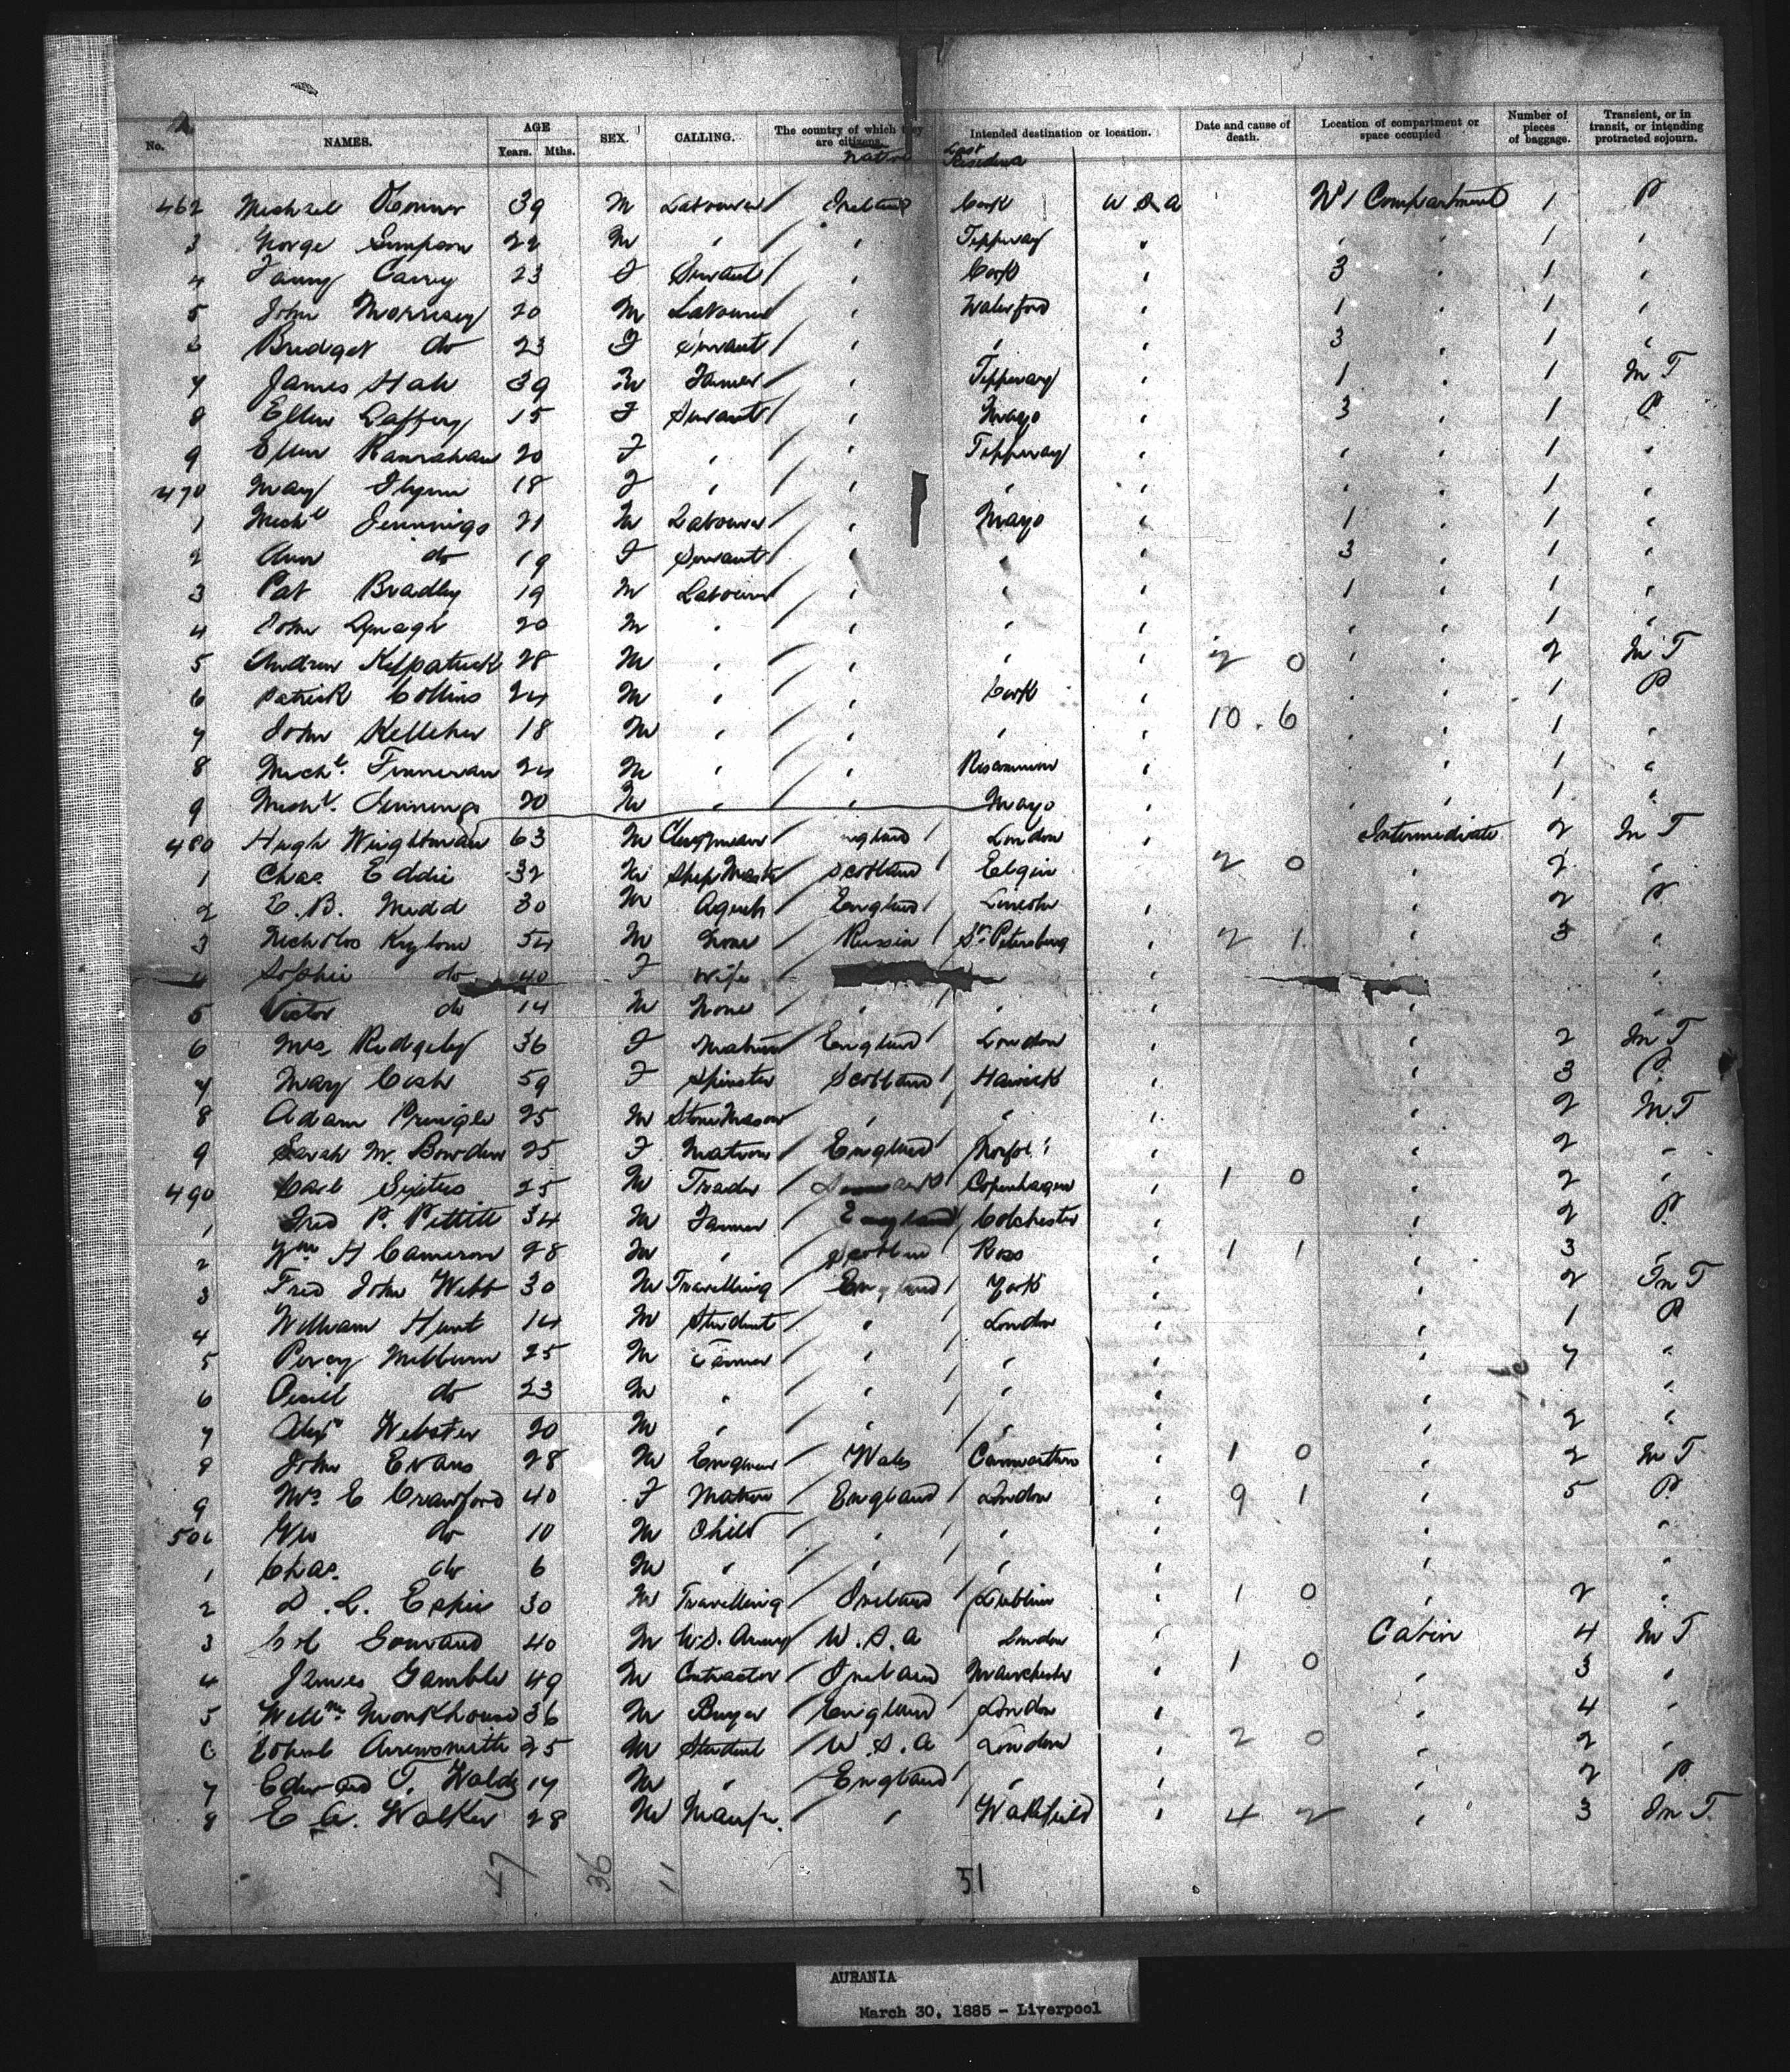 No. NAMES. AGE Years. Mths. SEX. CALLING. The country of which they are citizens. Intended destination or location. Date and cause of death. Location of compartment or space occupied Number of pieces of baggage. Transient, or in transit, or intending protracted sojourn.
Native Last Residence
462 Michael OConnor 39 M Labourer Ireland Cork U S A No 1 Compartment 1 P
3 George Simpson 22 M " " Tipperary " " " 1 "
4 Fanny Carey 23 F Servant " Cork " 3 " 1 "
5 John Morrisey 20 M Labourer " Waterford " 1 " 1 "
6 Bridget do 23 F Servant " " " 3 " 1 "
7 James 39 M Farmer " Tipperary " 1 " 1 In T
8 Ellen Laffery 15 F Servant " Mayo " 3 " 1 P
9 Ellen Hanrahan 20 F " " Tipperary " " " 1 "
470 Mary Flynn 18 F " " " " " " 1 "
1 Michl Jennings 21 M Labourer " Mayo " 1 " 1 "
2 Ann do 19 F Servant " " " 3 " 1 "
3 Pat Bradley 19 M Labourer " " " 1 " 1 "
4 John 20 M " " " " " " 1 "
5 Andrew Kilpatrick 28 M " " " " 2 0 " " 2 In T
6 Patrick Collins 24 M " " Cork " " " 1 P
7 John Kelleher 18 M " " " " 10.6 " " 1 "
8 Michl. Finneran 24 M " " Roscommon " " " 1 "
9 Michl. Jennings 20 M " " Mayo " " " 1 "
480 Hugh Wrightman 63 M Clergyman England London " Intermediate 2 In T
1 Chas Eddie 32 M Ship Master Scotland Elgin 2 0 " 2 "
2 E. B. Medd 30 M Agent England Lincoln " " 2 P
3 Nicholas 54 M None Russia St. Petersburg " 2 1 " 3 "
4 Sophie do 40 F Wife " "
5 Victor do 14 M None " " " " "
6 Mrs Ridgely 36 F Matron England London " " 2 In T
7 Mary 59 F Spinster Scotland Hawick " " 3 P
8 Adam Pringle 25 M Stone Mason " " " " 2 In T
9 Sarah M. Bowden 25 F Matron England Norfolk " " 2 "
490 Carl Sixtus 25 M Trader Denmark Copenhagen " 1 0 " 2 "
1 Fred P. Pettitt 34 M Farmer England Colchester " " 2 P
2 Wm H Cameron 28 M " Scotland Ross " 1 1 " 3 "
3 Fred John Webb 30 M Travelling England York " " 2 In T
4 William Hunt 14 M Student " London " " 1 P
5 Percy Milburn 25 M Farmer " " " " 7 "
6 Cecil do 23 M " " " " " "
7 Alexr Webster 20 M " " " " " 2 "
8 John Evans 28 M Engineer Wales Carmarthen " 1 0 " 2 In T
9 Mrs E Crawford 40 F Matron England London " 9 1 " 5 P
500 Wm do 10 M Child " " " " "
1 Chas. do 6 M " " " " " "
2 D. C. Espie 30 M Travelling Ireland Dublin " 1 0 " 2 "
3 Col 40 M U.S. Army U.S.A London " Cabin 4 In T
4 James Gamble 49 M Contractor Ireland Manchester " 1 0 " 3 "
5 Willm. Monkhouse 36 M Buyer England London " " 4 "
6 Arrowsmith 25 M Student U.S.A London " 2 0 " 2 "
7 Edward T. 17 M " England " " " 2 P
8 E A. Walker 28 M Manfr. " Wakefield " 4 2 " 3 In T.
47 36 11 51
AURANIA
March 30, 1885 - Liverpool